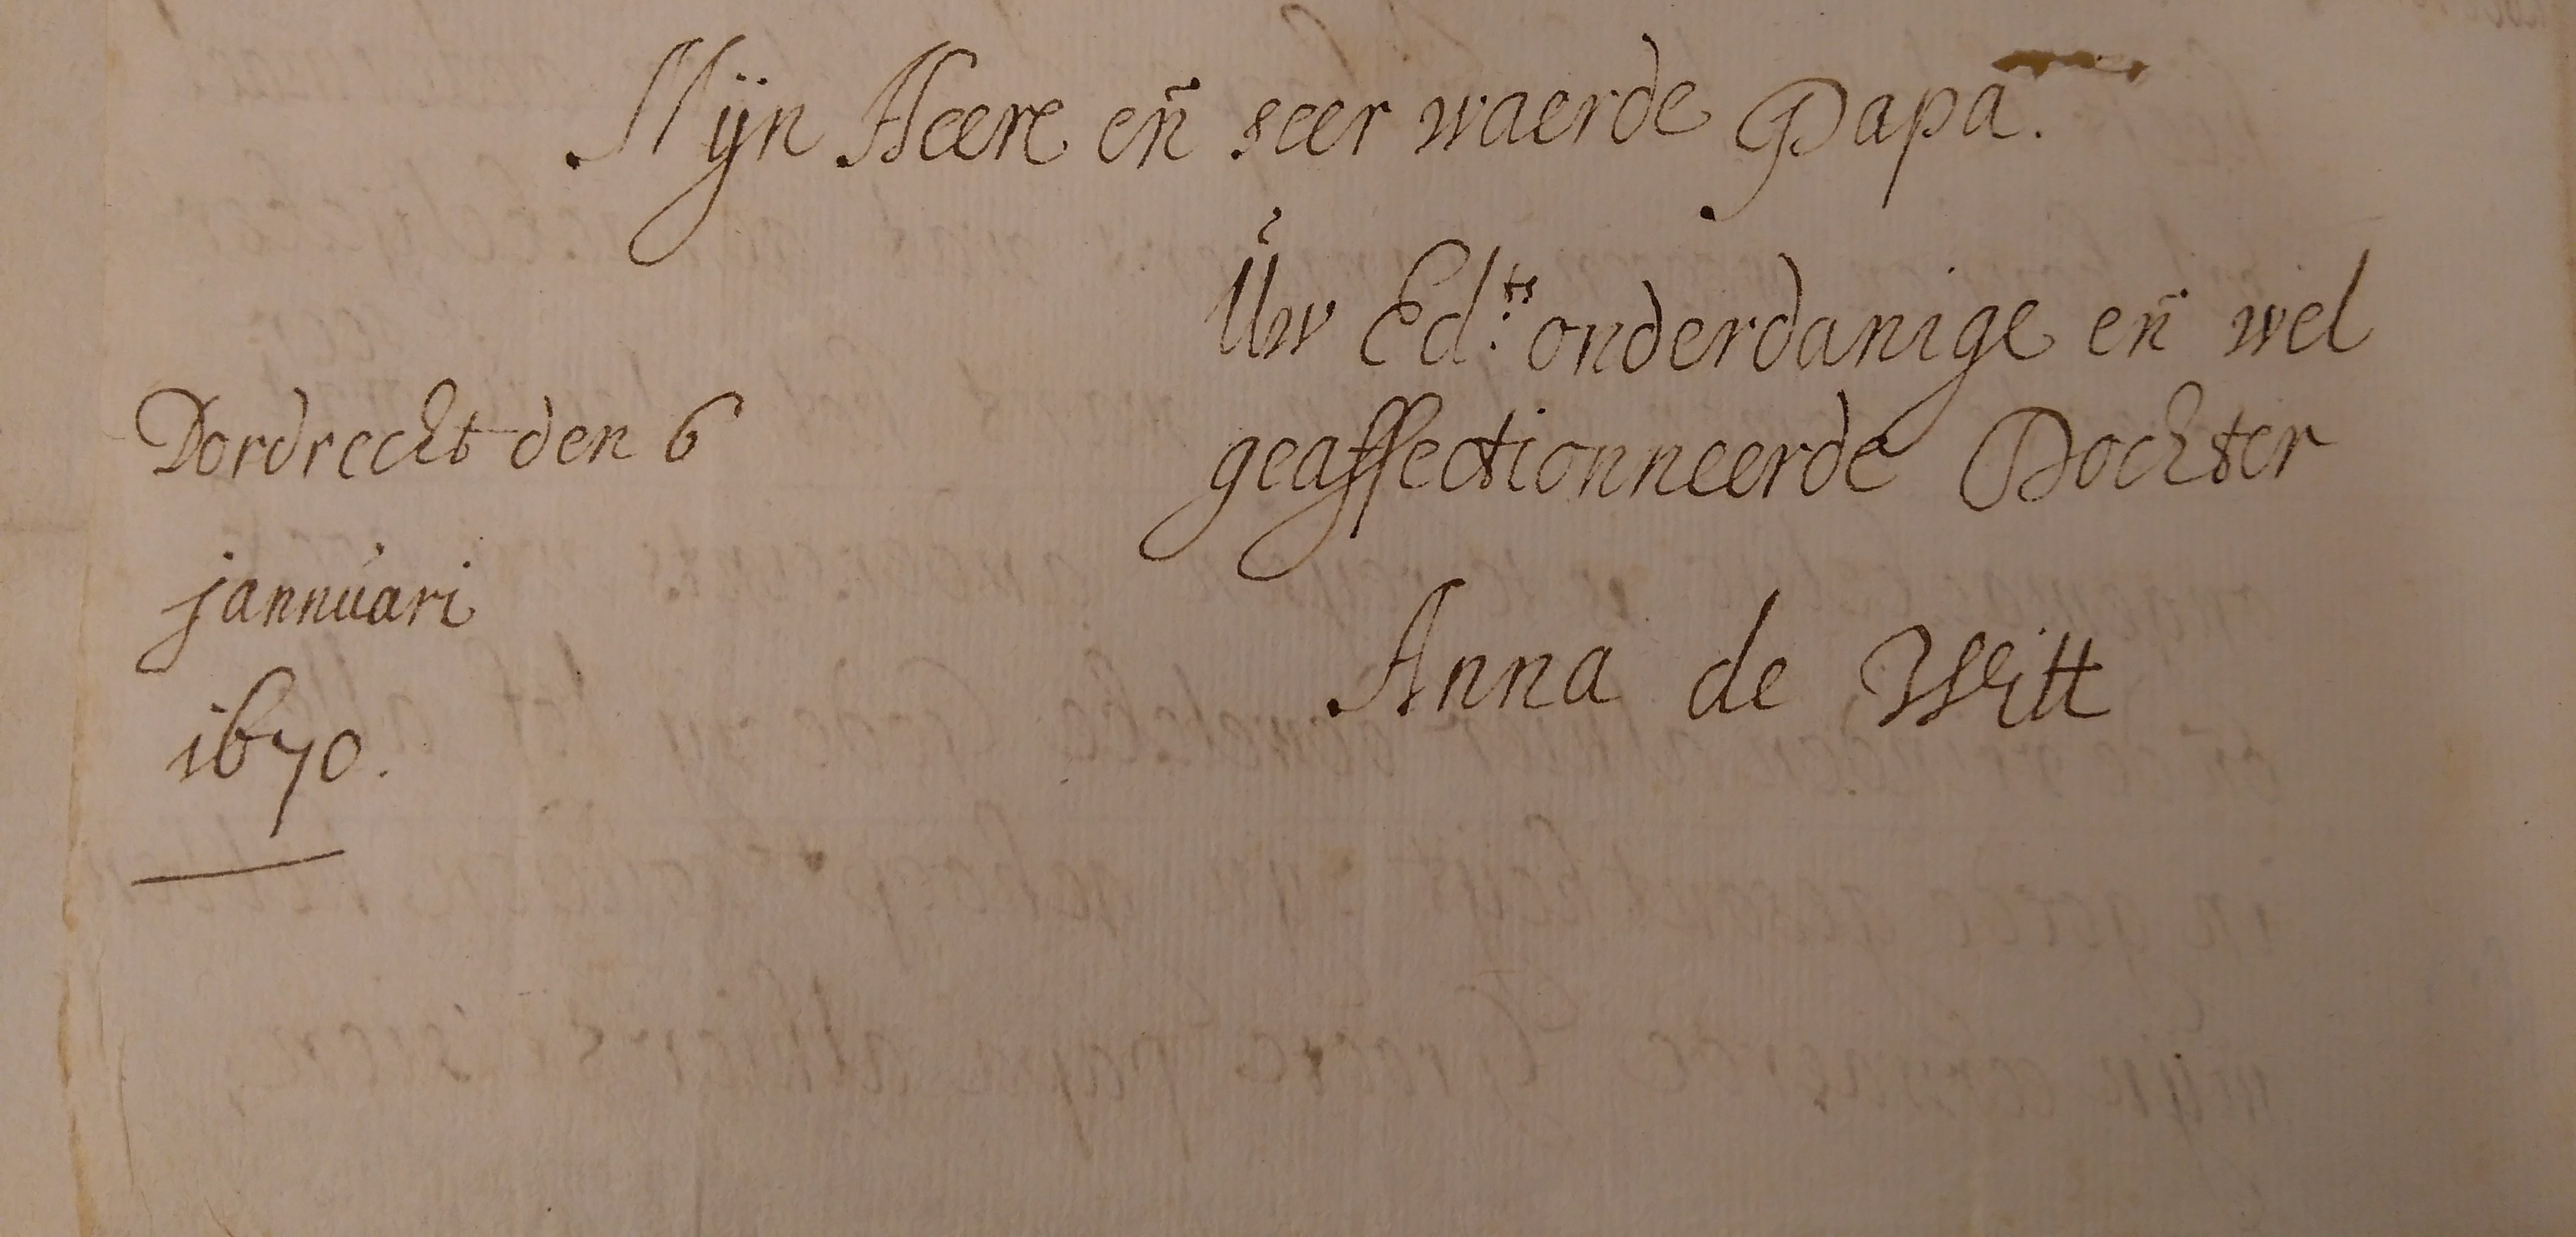 Mijn Heere en̄ seer waerde Papa.
Uw Ed:ts onderdanige en̄ wel
geaffectionneerde Dochter
Anna de Witt
Dordrecht den 6
jannuari
1670.